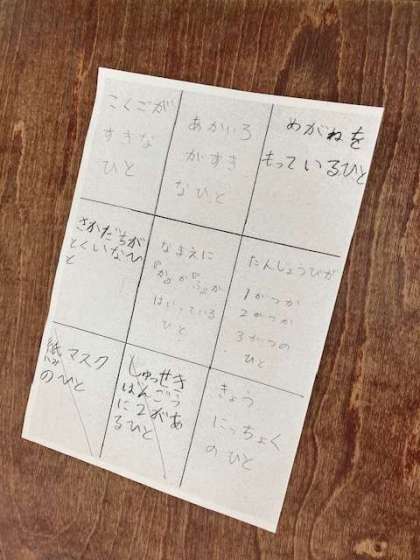 こくごが
すきな
ひと
あかいろ
がすき
なひと
めがねを
もっているひと
さかだちが
とくいなひ
と
なまえに
はいっている
ひと
たんじょうびが
1がつか
2がつか
3がつの
ひと
紙マスク
のひと
しゅっせき
ばんごう
に2があ
るひと
きょう
にっちょく
のひと